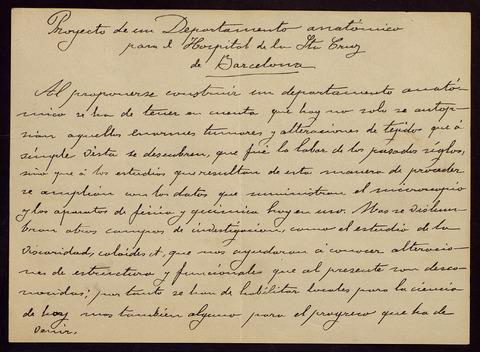 Proyecto de un Departamento anatómico
para el Hospital de la Sta Cruz
de Barcelona
Al proponerse construir un departamento anató-
mico se ha de tener en cuenta que hoy no solo se autop-
sian aquellos enormes tumores y alteraciones de tejido que á
simple vista se descubren, que fué la labor de los pasados siglos,
sino que á los estudios que resultan de esta manera de proceder
se amplian con los datos que suministran el microscopio
y los aparatos de física y química hoy en uso. Mas se vislum-
bran otros campos de investigacion, como el estudio de la
viscosidad, coloides &, que nos ayudaran á conocer alteracio-
nes de estructura y funcionales que al presente son desco-
nocidas; por tanto se han de habilitar locales para la ciencia
de hoy mas también alguno para el progreso que ha de
venir.